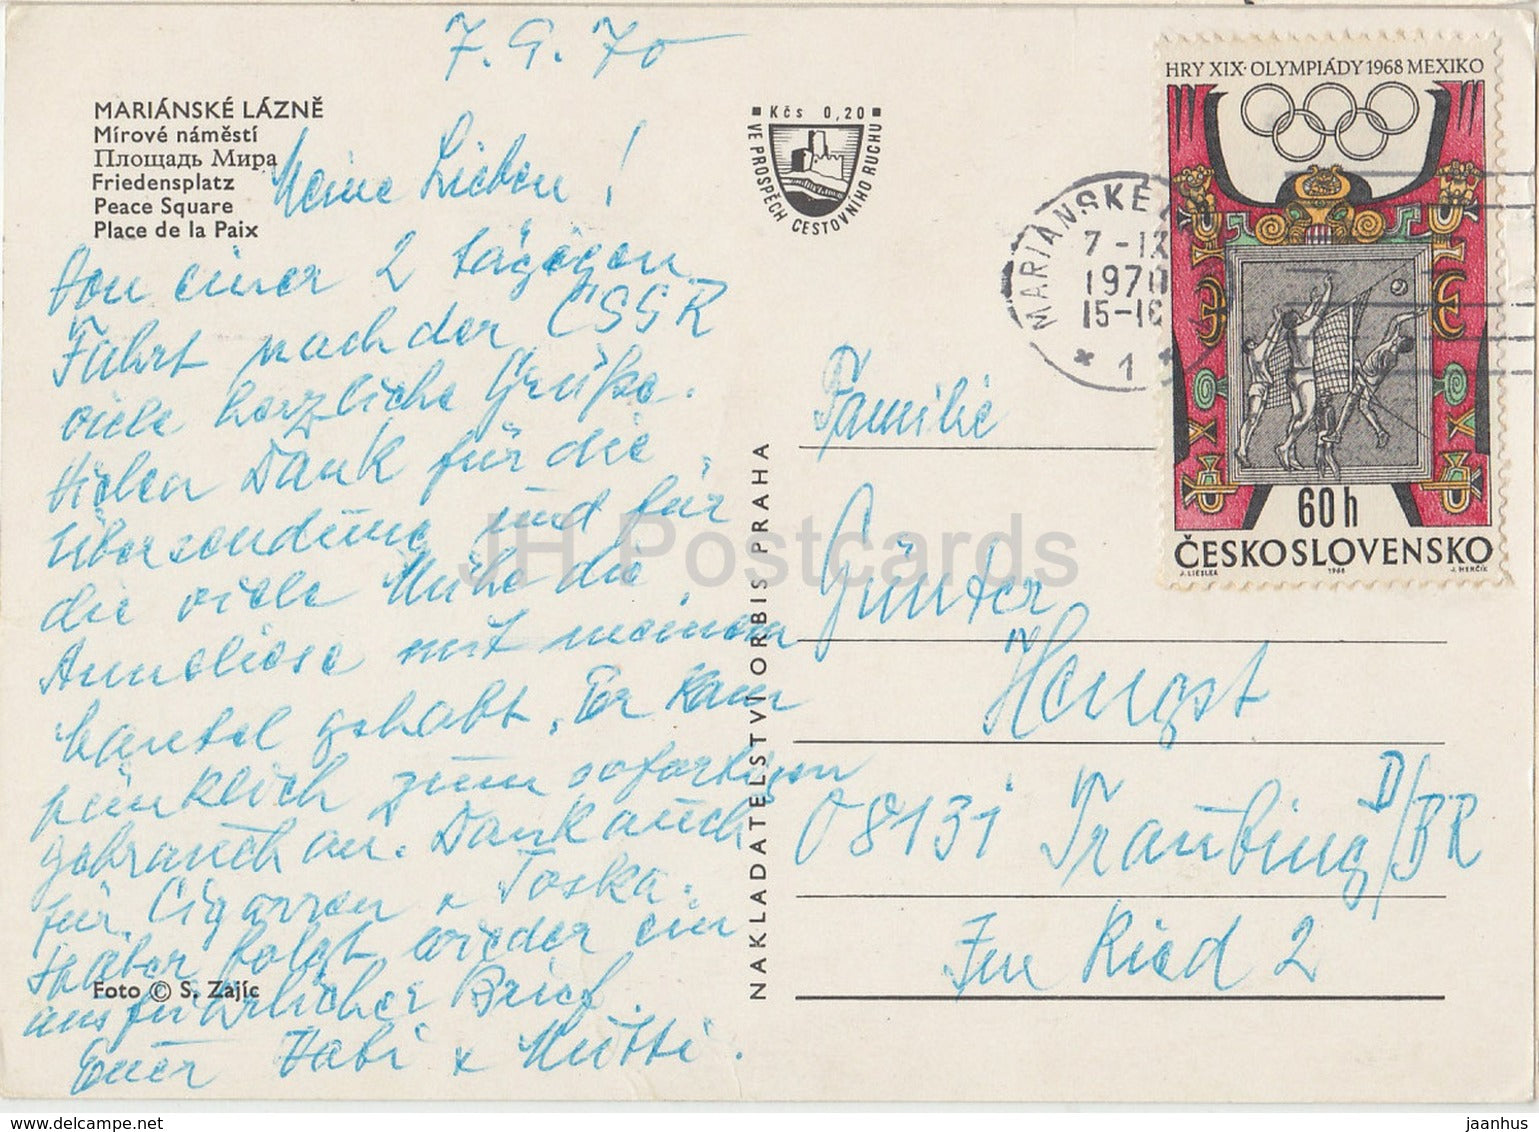 7. 9. 70
MARIÁNSKÉ LÁZNĚ
Mírové náměstí
Площадь Мира
Friedensplatz
Peace Square
Place de la Paix
Meine Lieben!
Von einer 2 tägigen
Fahrt nach der ČSSR
viele herzliche Grüße.
Vielen Dank für die
Übersendung und für
die viele Mühe die
Anneliese mit meinem
Mantel gehabt. Er kam
pünklich zum sofortigen
gebrauch an. Dank auch
für Cigarren u Toska.
Später folgt wieder ein
ausführlicher Brief.
Euer Vati u Mutti.
Foto © S. Zajíc
Kčs 0,20
VE PROSPĚCH CESTOVNÍHO RUCHU
NAKLADATELSTVÍ ORBIS PRAHA
MARIÁNSKÉ
7-IX
1970
15-16
* 1 *
HRY XIX. OLYMPIÁDY 1968 MEXIKO
60 h
ČESKOSLOVENSKO
J. LIESLER 1968 J. HERČÍK
Familie
Günter
Hengst
D/BRD
08131 Traubing
Im Ried 2
JH Postcards
www.delcampe.net
jaanhus